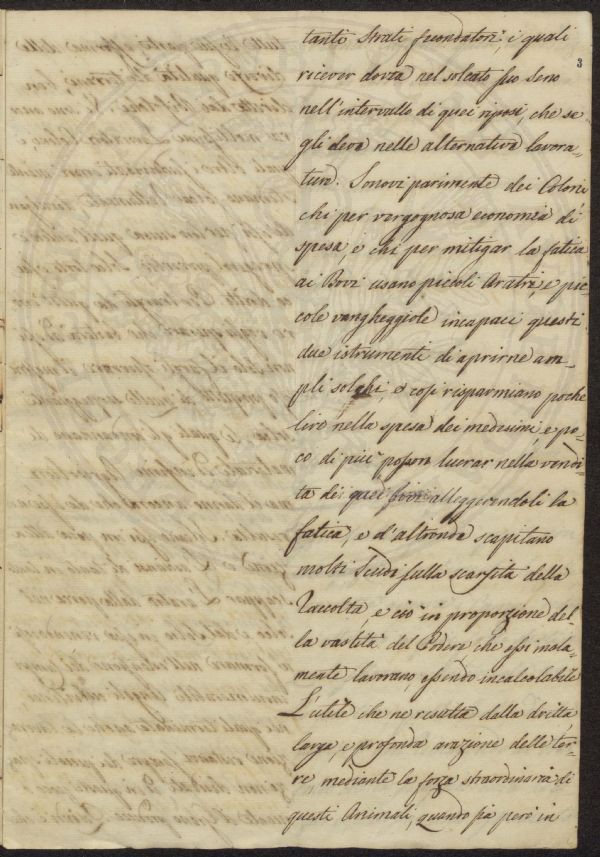 3
tanti strati fecondatori, i quali
ricever dovea nel solcato suo seno
nell'intervallo di quei riposi, che se
gli deve nelle alternative lavora-
ture. Sonovi parimente dei Coloni
chi per vergognosa economia di
spesa, e chi per mitigar la fatica
ai Bovi usano piccoli Aratri, e pic-
cole vangheggiole incapaci questi
due istrumenti di aprirne am-
pli solchi, e così risparmiano poche
lire nella spesa dei medesimi, e po-
co di più possono lucrar nella vendi-
ta dei quei bovi alleggerendoli la
fatica, e d'altronde scapitano
molti Scudi sulla scarsità della
Raccolta, e ciò in proporzione del-
la vastità del Podere che essi mala-
mente lavorano, essendo incalcolabile
L'utile che ne resulta dalla dritta
larga, e profonda arazione delle ter-
re, mediante la forza straordinaria di
questi Animali, quando sia però in